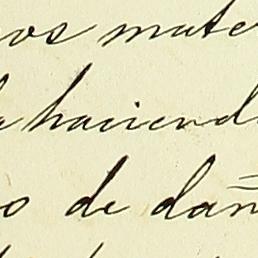 os mate
haciend
o de dañ